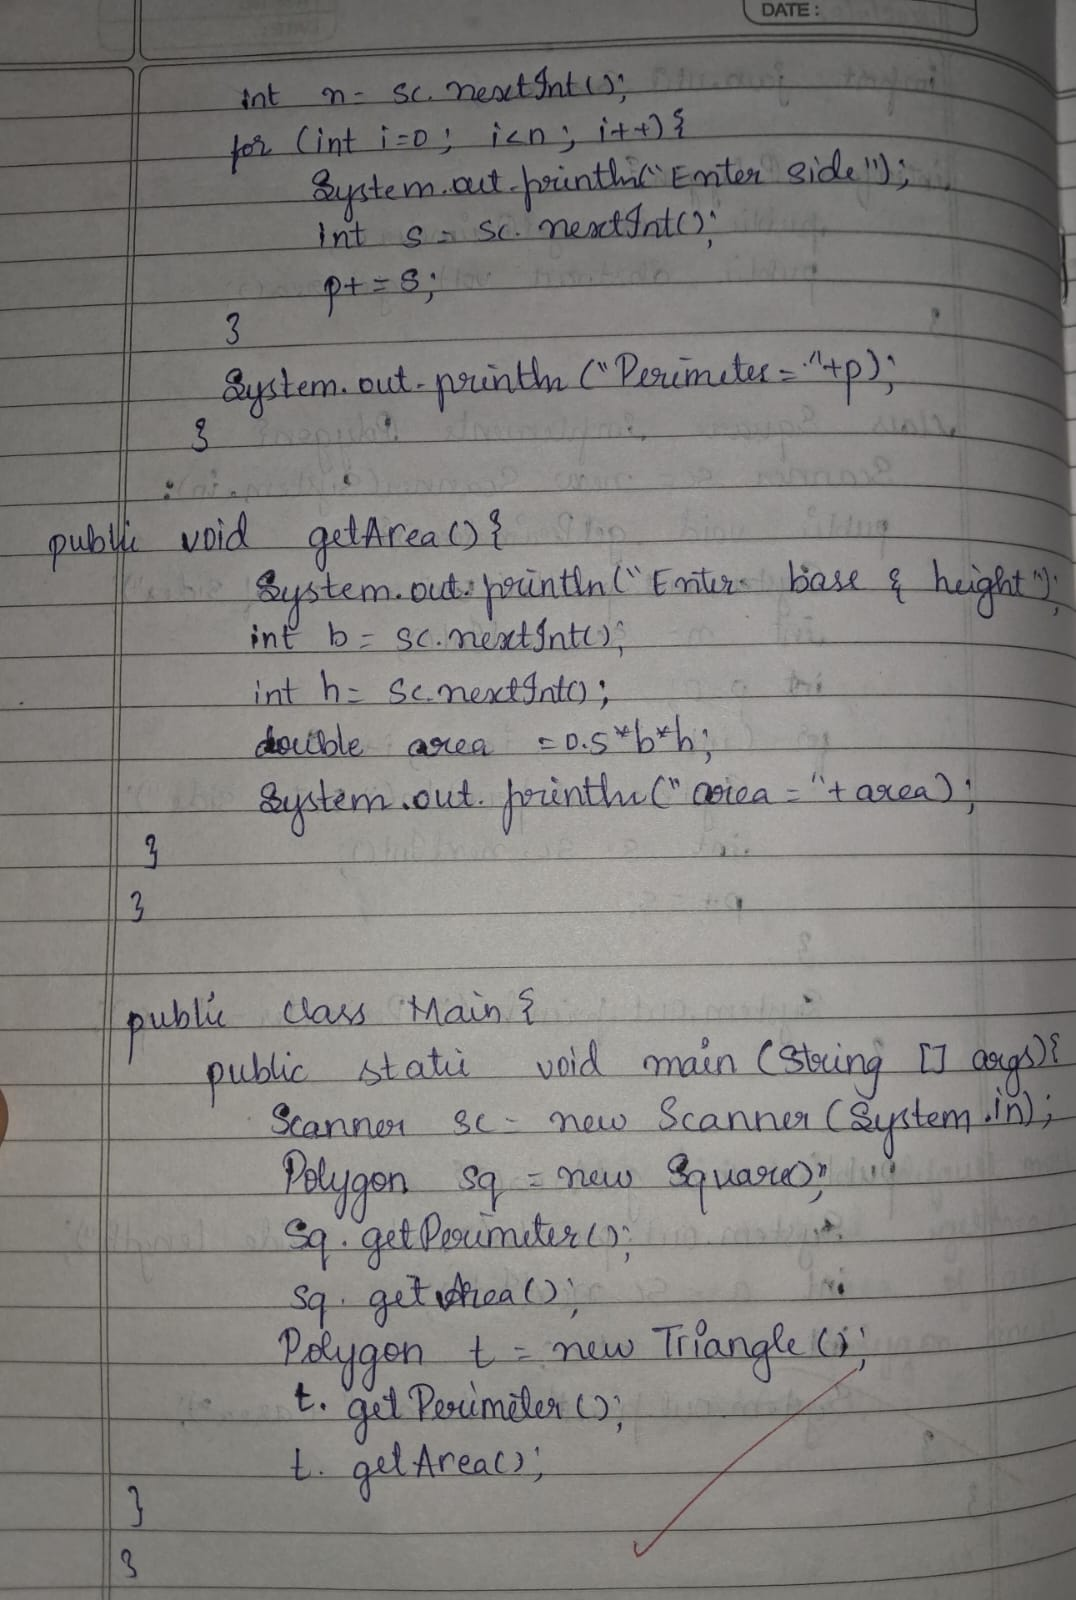 DATE:
int n= sc.nextInt();
for (int i=0; i<n; i++){
System.out.println("Enter side");
int s= sc.nextInt();
p+=s;
}
System.out.println("Perimeter="+p);
}
public void getArea(){
System.out.println("Enter base & height");
int b= sc.nextInt();
int h= sc.nextInt();
double area =0.5*b*h;
System.out.println("area="+area);
}
}
public class Main{
public static void main(String [] args){
Scanner sc= new Scanner(System.in);
Polygon sq = new Square();
sq.getPerimeter();
sq.getArea();
Polygon t = new Triangle();
t.getPerimeter();
t.getArea();
}
}